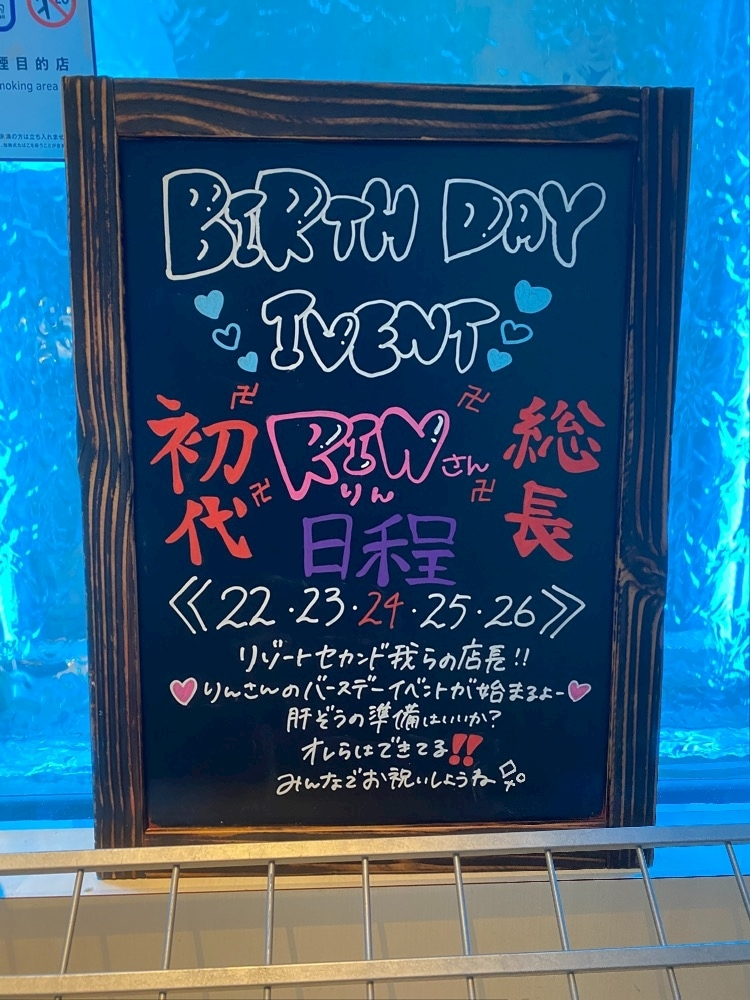 煙目的店
moking area
BIRTH DAY
IVENT
初代
卍 卍
RINさん
りん
卍 卍
総長
日程
《22・23・24・25・26》
リゾートセカンド我らの店長!!
りんさんのバースデーイベントが始まるよー
肝ぞうの準備はいいか?
オレらはできてる!!
みんなでお祝いしようね